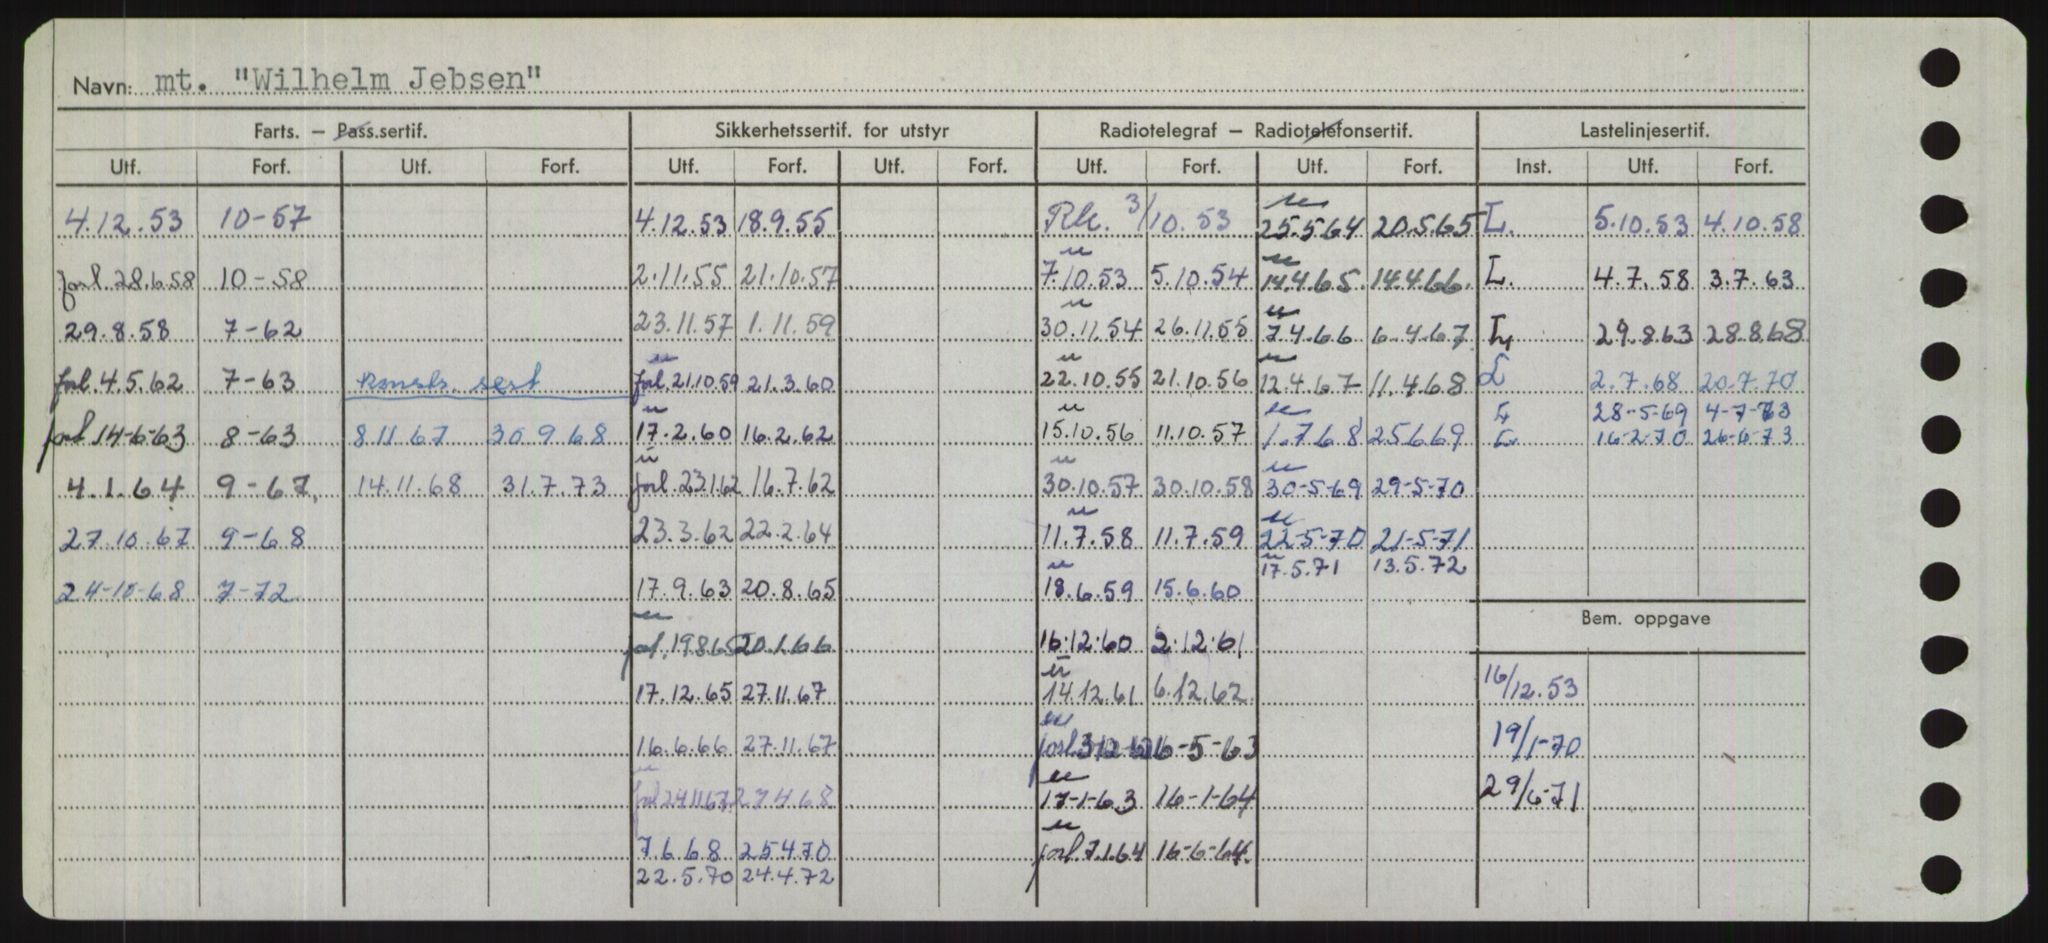 Navn: mt. "Wilhelm Jebsen"
Farts. — Pass.sertif. Sikkerhetssertif. for utstyr Radiotelegraf — Radiotelefonsertif. Lastelinjesertif.
Utf. Forf. Utf. Forf. Utf. Forf. Utf. Forf. Utf. Forf. Utf. Forf. Inst. Utf. Forf.
4.12.53 10-57 4.12.53 18.9.55 3/10.53 25.5.64 20.5.65 L. 5.10.53 4.10.58
forl. 28.6.58 10-58 2.11.55 21.10.57 7.10.53 5.10.54 14.4.65. 14.4.66. L. 4.7.58 3.7.63
29.8.58 7-62 23.11.57 1.11.59 30.11.54 26.11.55 7.4.66 6.4.67 L 29.8.63 28.8.68
forl. 4.5.62 7-63 konsts. sert forl. 21.10.59 21.3.60 22.10.55 21.10.56 12.4.67 11.4.68 L 2.7.68 20.7.70
L 28-5-69 4-7-73
forl 14-6-63 8-63 8.11.67 30.9.68 17.2.60 16.2.62 15.10.56 11.10.57 1.7.68 25.6.69 L 16-2-70 26-6-73
4.1.64 9-67, 14.11.68 31.7.73 forl. 23.1.62 16.7.62 30.10.57 30.10.58 30-5-69 29-5-70
27.10.67 9-68 23.3.62 22.2.64 11.7.58 11.7.59 22-5-70 21-5-71
17.5.71 13.5.72
24-10-68 7-72 17.9.63 20.8.65 18.6.59 15.6.60
Bem. oppgave
forl. 19.8.65 20.1.66 16.12.60 2.12.61
17.12.65 27.11.67 14.12.61 6.12.62 16/12.53
16.6.66 27.11.67 forl. 6-5-63 19/1-70
forl 24.11.67 27.4.68 17-1-63 16-1-64 29/6-71
7.6.68 25.4.70 forl. 7.1.64 16-6-64.
22.5.70 24.4.72